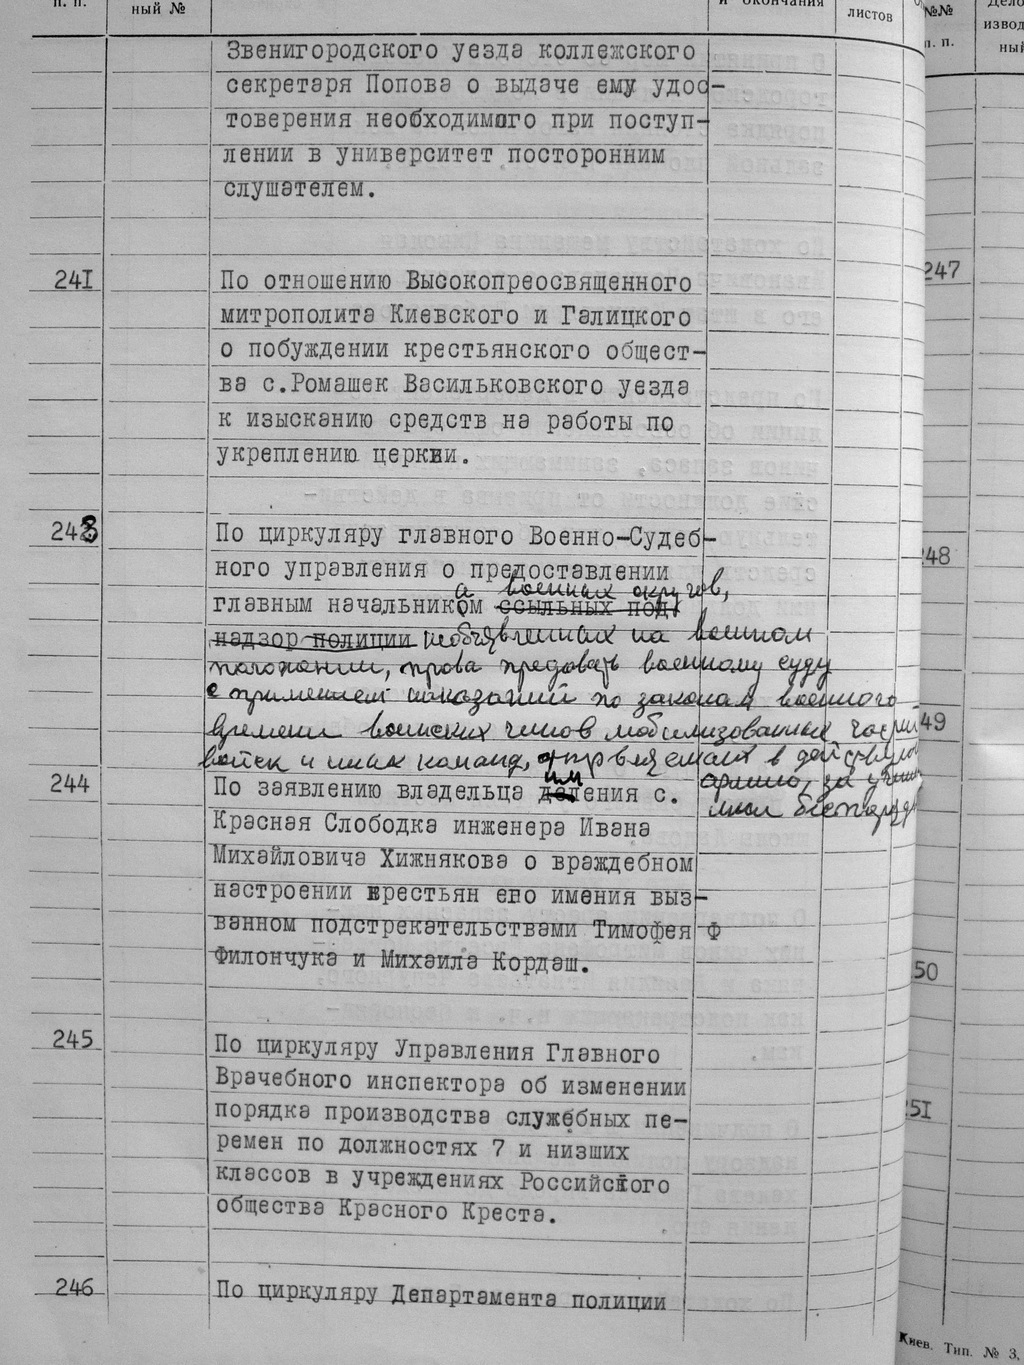 п. п.
ный №
и окончания
листов
№№
п. п.
Дело
извод
ный
Звенигородского уезда коллежского
секретаря Попова о выдаче ему удос-
товерения необходимого при поступ-
лении в университет посторонним
слушателем.
241 По отношению Высокопреосвященного
митрополита Киевского и Галицкого
о побуждении крестьянского общест-
ва с.Ромашек Васильковского уезда
к изысканию средств на работы по
укреплению церкви.
243 По циркуляру главного Военно-Судеб-
ного управления о предоставлении
а военных округов,
главным начальником ссыльных под
надзор полиции необъявленных на военном
положении, права предавать военному суду
с применением наказаний по законам военного
времени воинских чинов мобилизованных частей
войск и иных команд, отправляемых в действ.
армию, за
им
244 По заявлению владельца деления с.
Красная Слободка инженера Ивана
Михайловича Хижнякова о враждебном
настроении крестьян его имения выз-
ванном подстрекательствами Тимофея Ф
Филончука и Михаила Кордаш.
245 По циркуляру Управления Главного
Врачебного инспектора об изменении
порядка производства служебных пе-
ремен по должностях 7 и низших
классов в учреждениях Российского
общества Красного Креста.
246 По циркуляру Департамента полиции
247
248
49
50
51
Киев. Тип. № 3,